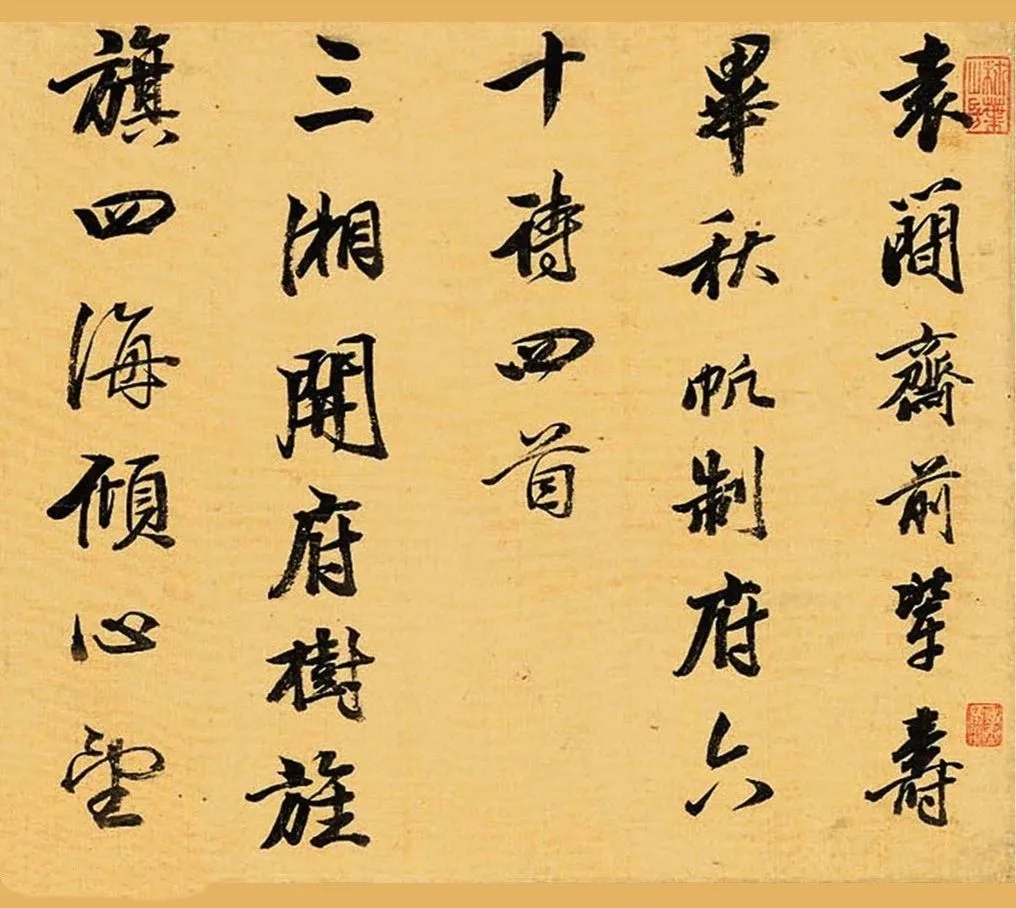 袁蕳齋前輩壽
畢秋帆制府六
十詩四首
三湘開府樹旌
旗四海傾心望